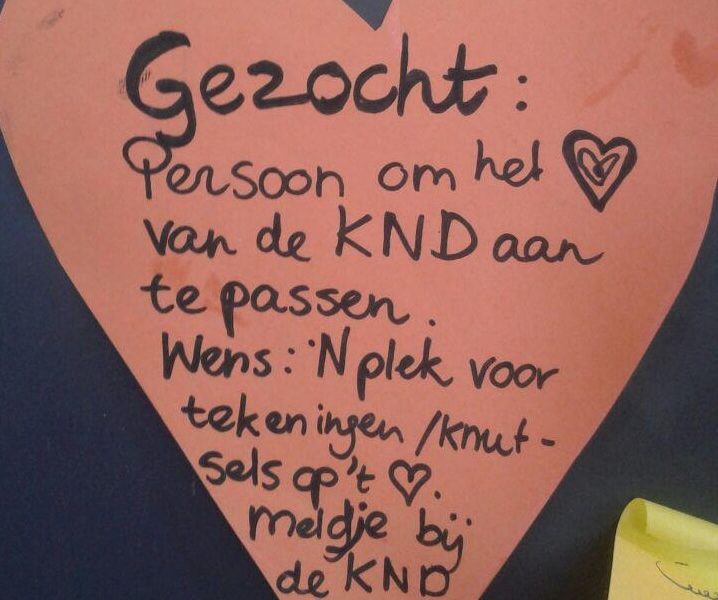 Gezocht:
Persoon om het ♡
van de KND aan
te passen.
Wens: 'N plek voor
tekeningen /knut-
sels op 't ♡.
meldje bij
de KND